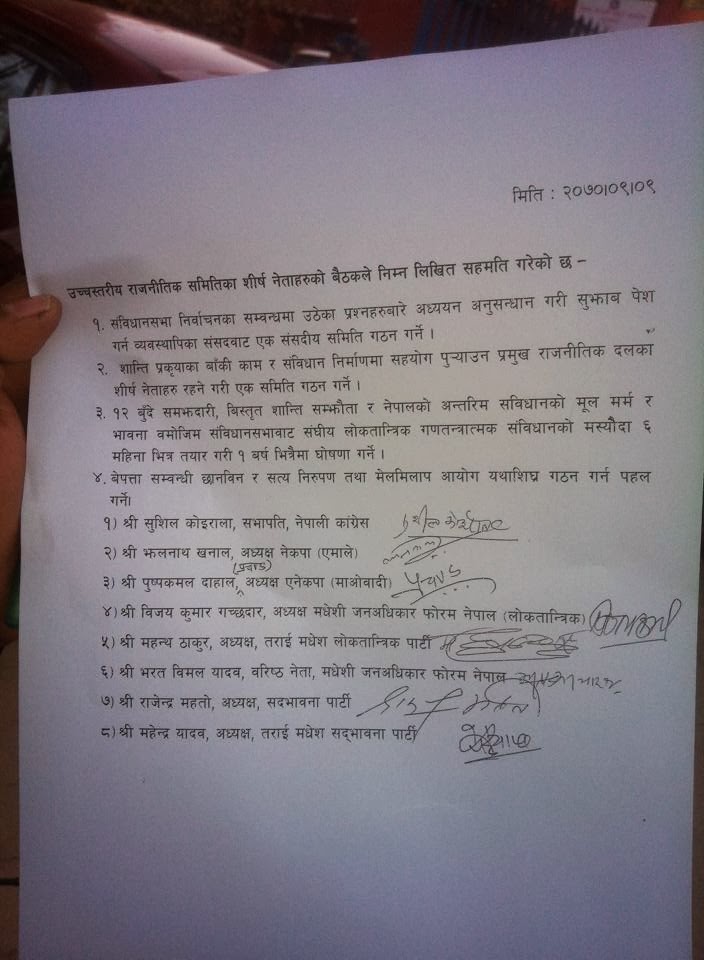 मिति : २०७०।०९।०९
उच्चस्तरीय राजनीतिक समितिका शीर्ष नेताहरुको बैठकले निम्न लिखित सहमति गरेको छ –
१. संविधानसभा निर्वाचनका सम्वन्धमा उठेका प्रश्नहरुबारे अध्ययन अनुसन्धान गरी सुझाब पेश
गर्न व्यवस्थापिका संसदवाट एक संसदीय समिति गठन गर्ने ।
२. शान्ति प्रकृयाका बाँकी काम र संविधान निर्माणमा सहयोग पुऱ्याउन प्रमुख राजनीतिक दलका
शीर्ष नेताहरु रहने गरी एक समिति गठन गर्ने ।
३. १२ बुँदे समझदारी, बिस्तृत शान्ति सम्झौता र नेपालको अन्तरिम सविधानको मूल मर्म र
भावना वमोजिम संविधानसभावाट संघीय लोकतान्त्रिक गणतन्त्रात्मक संविधानको मस्यौदा ६
महिना भित्र तयार गरी १ बर्ष भित्रैमा घोषणा गर्ने ।
४. बेपत्ता सम्वन्धी छानविन र सत्य निरुपण तथा मेलमिलाप आयोग यथाशिघ्र गठन गर्न पहल
गर्ने।
१) श्री सुशिल कोइराला, सभापति, नेपाली कांग्रेस
२) श्री झलनाथ खनाल, अध्यक्ष नेकपा (एमाले)
(प्रचण्ड)
३) श्री पुष्पकमल दाहाल, अध्यक्ष एनेकपा (माओवादी)
४) श्री विजय कुमार गच्छदार, अध्यक्ष मधेशी जनअधिकार फोरम नेपाल (लोकतान्त्रिक)
५) श्री महन्थ ठाकुर, अध्यक्ष, तराई मधेश लोकतान्त्रिक पार्टी
६) श्री भरत विमल यादव, वरिष्ठ नेता, मधेशी जनअधिकार फोरम नेपाल
७) श्री राजेन्द्र महतो, अध्यक्ष, सदभावना पार्टी
८) श्री महेन्द्र यादव, अध्यक्ष, तराई मधेश सद्‌भावना पार्टी